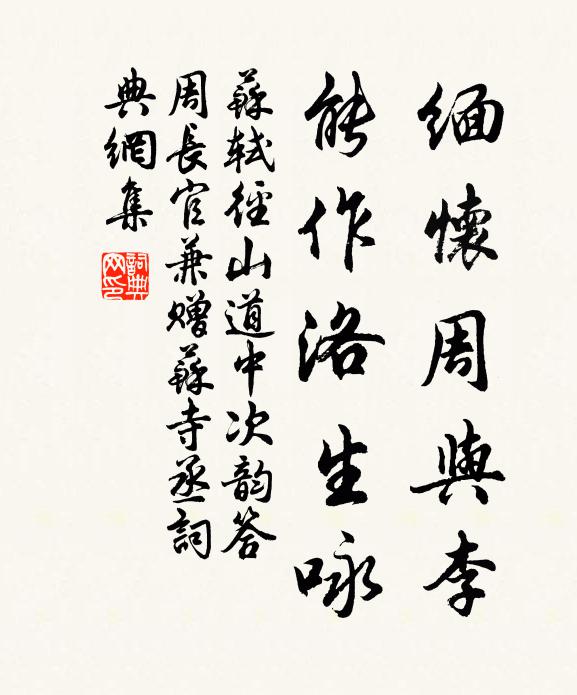 緬懷周與李
能作洛生咏
蘇軾徑山道中次韵答
周長官兼贈蘇寺丞詞
典網集
詞典網印